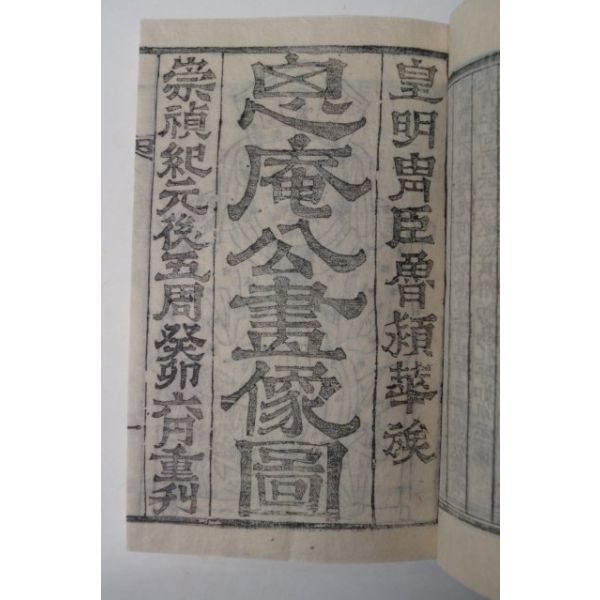 皇明冑臣魯潁華族
恖庵公畫像圖
崇禎紀元後五周癸卯六月重刊